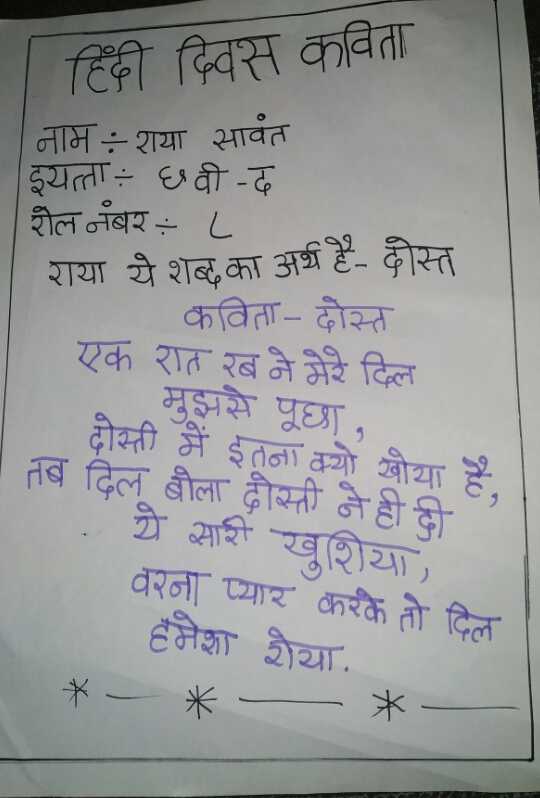 हिंदी दिवस कविता
नाम ÷ राया सावंत
इयत्ता ÷ छवी -द
रोल नंबर ÷ ८
राया ये शब्द का अर्थ है- दोस्त
कविता - दोस्त
एक रात रब ने मेरे दिल
मुझसे पूछा,
दोस्ती में इतना क्यो खोया है,
तब दिल बोला दोस्ती ने ही दी
ये सारी खुशिया,
वरना प्यार करके तो दिल
हमेशा रोया.